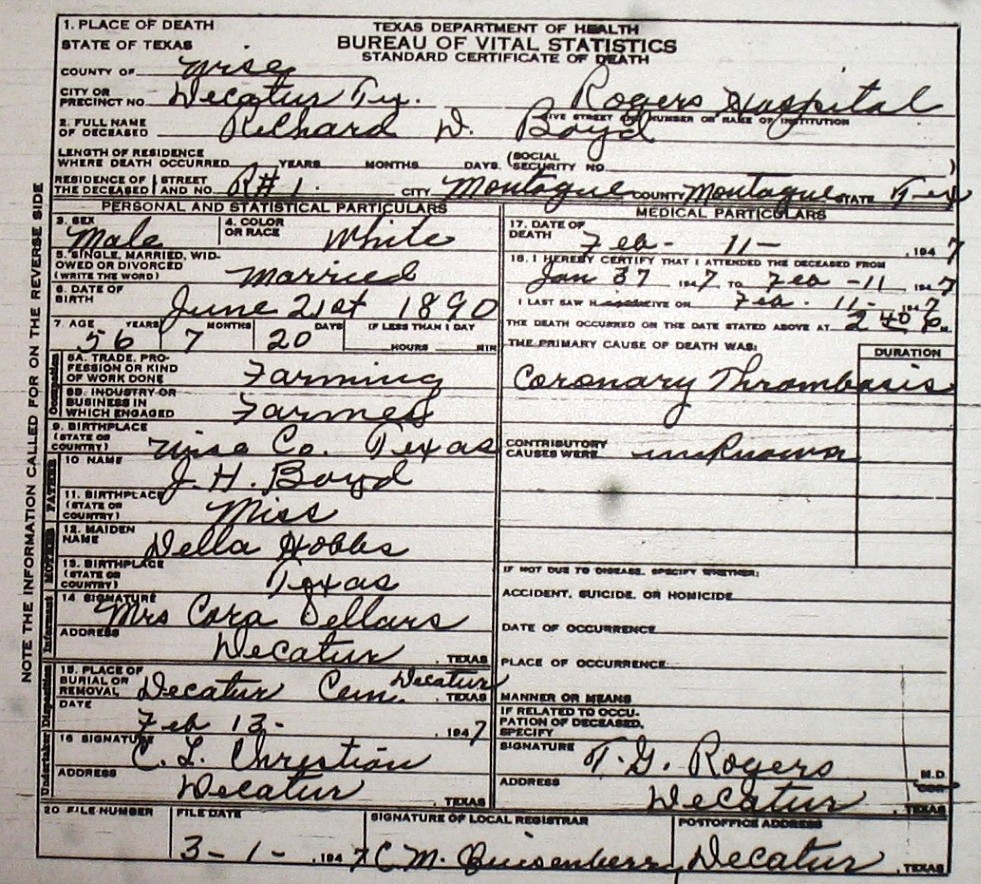 TEXAS DEPARTMENT OF HEALTH
BUREAU OF VITAL STATISTICS
STANDARD CERTIFICATE OF DEATH
1. PLACE OF DEATH
STATE OF TEXAS
COUNTY OF Wise
CITY OR PRECINCT NO. Decatur Tx. Rogers Hospital
GIVE STREET AND NUMBER OR NAME OF INSTITUTION
2. FULL NAME OF DECEASED Richard D. Boyd
LENGTH OF RESIDENCE WHERE DEATH OCCURRED YEARS MONTHS DAYS. (SOCIAL SECURITY NO. )
RESIDENCE OF THE DECEASED STREET AND NO. R#1. CITY Montague COUNTY Montague STATE Tex
NOTE THE INFORMATION CALLED FOR ON THE REVERSE SIDE
PERSONAL AND STATISTICAL PARTICULARS
3. SEX Male 4. COLOR OR RACE White
5. SINGLE, MARRIED, WIDOWED OR DIVORCED (WRITE THE WORD) Married
6. DATE OF BIRTH June 21st 1890
7. AGE 56 YEARS 7 MONTHS 20 DAYS IF LESS THAN 1 DAY HOURS MIN
Occupation
8A. TRADE, PROFESSION OR KIND OF WORK DONE Farming
8B. INDUSTRY OR BUSINESS IN WHICH ENGAGED Farmer
9. BIRTHPLACE (STATE OR COUNTRY) Wise Co. Texas
FATHER
10 NAME J. H. Boyd
11. BIRTHPLACE (STATE OR COUNTRY) Miss
MOTHER
12. MAIDEN NAME Della Hobbs
13. BIRTHPLACE (STATE OR COUNTRY) Texas
Informant
14 SIGNATURE Mrs Cora Sellars
ADDRESS Decatur, TEXAS
Disposition
15. PLACE OF BURIAL OR REMOVAL Decatur Cem. Decatur, TEXAS
DATE Feb 13- , 1947
Undertaker
16 SIGNATURE C. L. Christian
ADDRESS Decatur, TEXAS
MEDICAL PARTICULARS
17. DATE OF DEATH Feb- 11- , 1947
18. I HEREBY CERTIFY THAT I ATTENDED THE DECEASED FROM
Jan 1947 TO Feb -11 1947
I LAST SAW H ALIVE ON Feb. 11- 1947
THE DEATH OCCURRED ON THE DATE STATED ABOVE AT 2 40 P M.
THE PRIMARY CAUSE OF DEATH WAS: DURATION
Coronary Thrombosis
CONTRIBUTORY CAUSES WERE unknown
IF NOT DUE TO DISEASE, SPECIFY WHETHER:
ACCIDENT, SUICIDE, OR HOMICIDE
DATE OF OCCURRENCE
PLACE OF OCCURRENCE
MANNER OR MEANS
IF RELATED TO OCCUPATION OF DECEASED, SPECIFY
SIGNATURE T. G. Rogers M.D.
ADDRESS Decatur, TEXAS
20 FILE NUMBER FILE DATE SIGNATURE OF LOCAL REGISTRAR POSTOFFICE ADDRESS
3-1-, 1947 C. M. Quisenberry Decatur, TEXAS